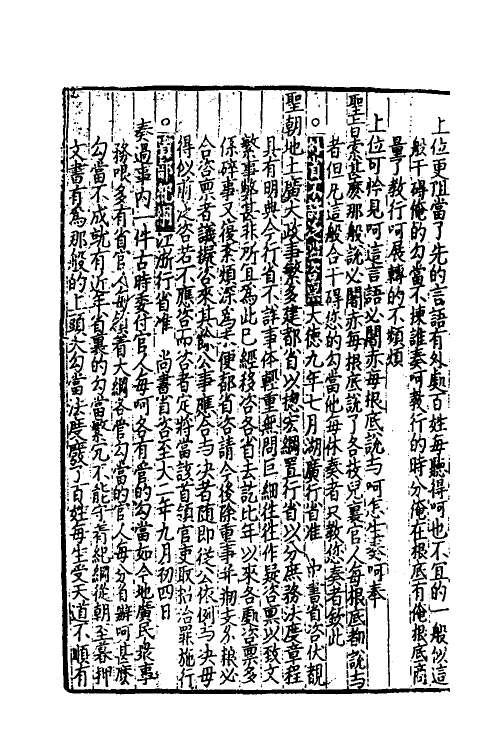 上位更阻當了先的言語有外頭百姓每聽得呵也不宜的一般似這
般干碍俺的勾當不揀誰奏呵教行的時分俺在根底有俺根底商
量了教行呵展轉的不頻煩
上位可怜見呵這言語必闍亦每根底說与呵怎生奏呵奉
聖旨索甚麼那般說必闍亦每根底說了各枝兒裏官人每根底都說与
者但凡這般合干碍您的勾當他每休奏者只教您奏者欽此
○外省不許泛濫咨稟大德九年七月湖廣行省准 中書省咨伏覩
聖朝地土廣大政事繁多建都省以揔宏綱置行省以分庶務法度章程
具有明典今行省不詳事体輕重無問巨細往往作疑咨稟以致文
繁事弊甚非所宜爲此已經移咨各省去訖比年以來各處咨稟多
係碎事又復索煩深爲未便都省咨請今後除重事并支錢粮必
合咨稟者議擬咨來其餘公事應合与决者随即從公依例与决毋
得似前泛咨若不應咨而咨者定將當該首領官吏取招治罪施行
○省部紀綱江浙行省准 尚書省咨至大二年九月初四日
奏過事內一件古時委付官人每呵各有管的勾當如今地廣民衆事
務哏多有省官人每㨿着大綱各管勾當的官人每分自辦呵甚麼
勾當不成就有近年省裏的勾當繁冗不能守肴紀綱從朝至暮押
文書有爲那般的上頭大勾當法度廢了百姓每生受天道不順有